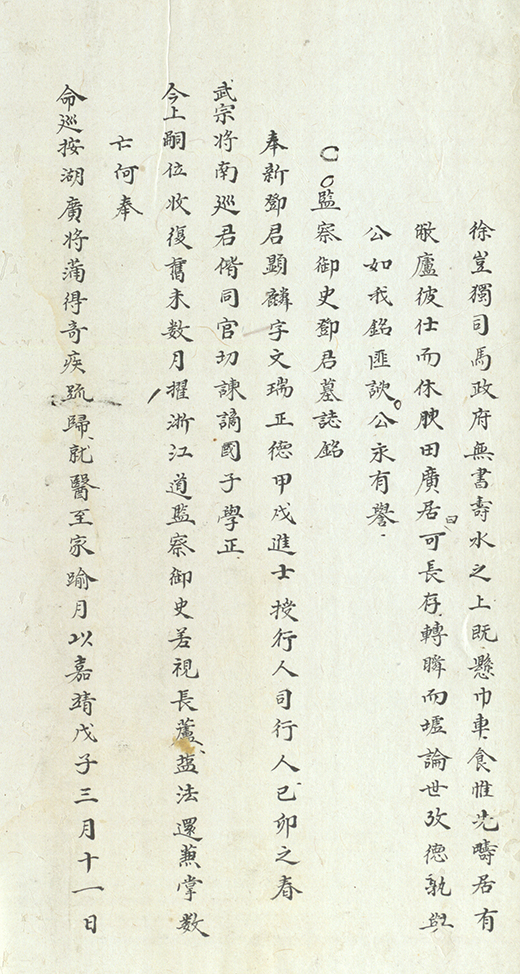 徐豈獨司馬政府無書壽水之上既懸巾車食惟先疇居有
敝廬彼仕而休腴田廣居曰可長存轉瞬而墟論世攷德孰與
公如我銘匪諛公永有譽
監察御史鄧君墓誌銘
奉新鄧君顯麟字文瑞正德甲戌進士授行人司行人己卯之春
武宗将南巡君偕同官切諫謫國子學正
今上嗣位收復舊未数月擢浙江道監察御史若視長蘆盐法還蒹掌数
亡何奉
命巡按湖廣将蒲得奇疾䟽歸就醫至家踰月以嘉靖戊子三月十一日